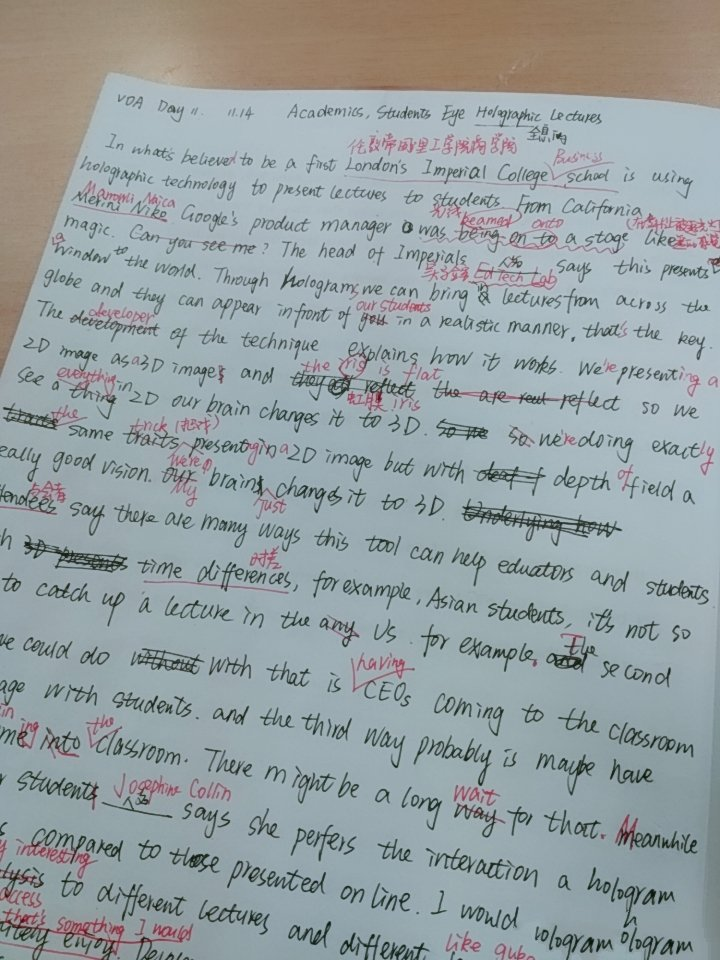 VOA Day 11. 11.14 Academics, Students Eye Holographic Lectures
全息的
伦敦帝国理工学院商学院 Business
In what's believed to be a first London's Imperial College school is using
holographic technology to present lectures to students from California
Maromi Naica beamed onto
Merini Niko Google's product manager was being on to a stage like
magic. Can you see me? The head of Imperials 人名 says this presents
a EdTech Lab
window to the world. Through holograms, we can bring lectures from across the
globe and they can appear infront of our students you in a realistic manner, that's the key.
developer
The development of the technique explains how it works. We're presenting a
2D image as a 3D image and the iris is flat
they reflect the are reflect so we
everything in 虹膜 iris
see a thing 2D our brain changes it to 3D. so we so we're doing exactly
the trick (把戏)
same traits presenting in a 2D image but with depth of field a
were
really good vision. Our My brain just changes it to 3D. Underlying how
与会者
tendees say there are many ways this tool can help educators and students
时差
3D presents time differences, for example, Asian students, it's not so
to catch up a lecture in the any US. for example. The and second
having
we could do without with that is CEOs coming to the classroom
age with students. and the third way probably is maybe have
in ing the
me into classroom. There might be a long wait way for that. Meanwhile
Josephine Collin
students 人名 says she perfers the interaction a hologram
compared to those presented on line. I would
interesting
to different lectures and different hologram
access like
that's something I would
enjoy